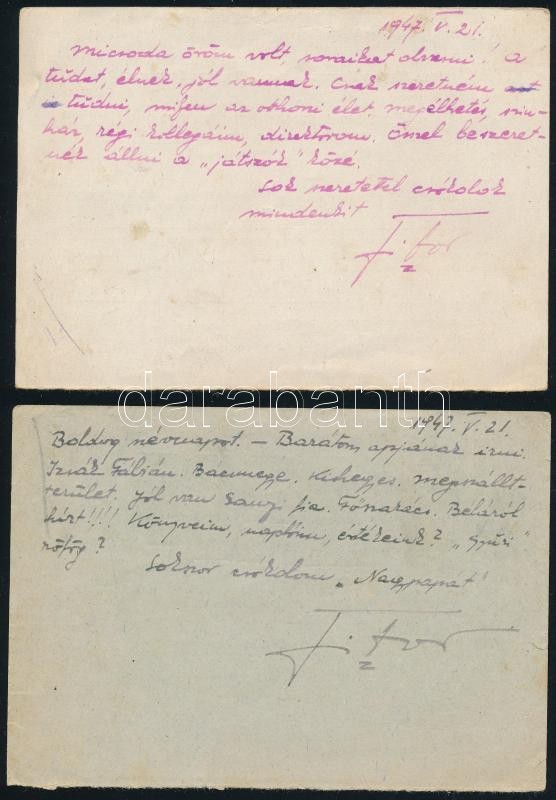 1947. V. 21.
Micsoda öröm volt, soraikat olvasni! a
tudat, élnek, jól vannak. Csak szeretném
tudni, milyen az otthoni élet, megélhetés, szin-
ház, régi kollegáim, direktorom. beszeret-
nék állni a „játszók" közé.
Sok szeretettel csókolok
mindenkit
darabanth
1947. V. 21.
Boldog névnapot. – Barátom apjának irni.
Izsák Fábián. Kishegyes. megszállt-
terület. Jól van fia. Béláról
hírt!!!! Könyveim, naplóim, értékeink? „Gyuri"
röfög?
Sokszor csókolom „Nagypapát"